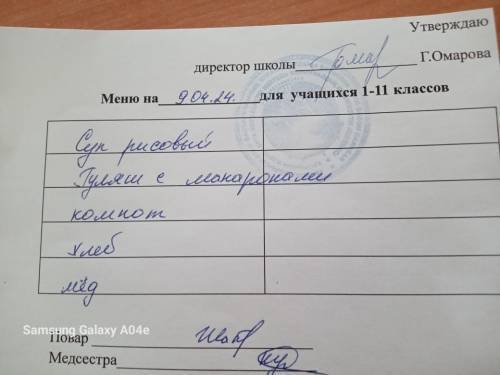 Утверждаю
директор школы Г.Омарова
Меню на 9.04.24. для учащихся 1-11 классов
Суп рисовый
Гуляш с макаронами
компот
хлеб
мёд
Повар
Медсестра
Samsung Galaxy A04e